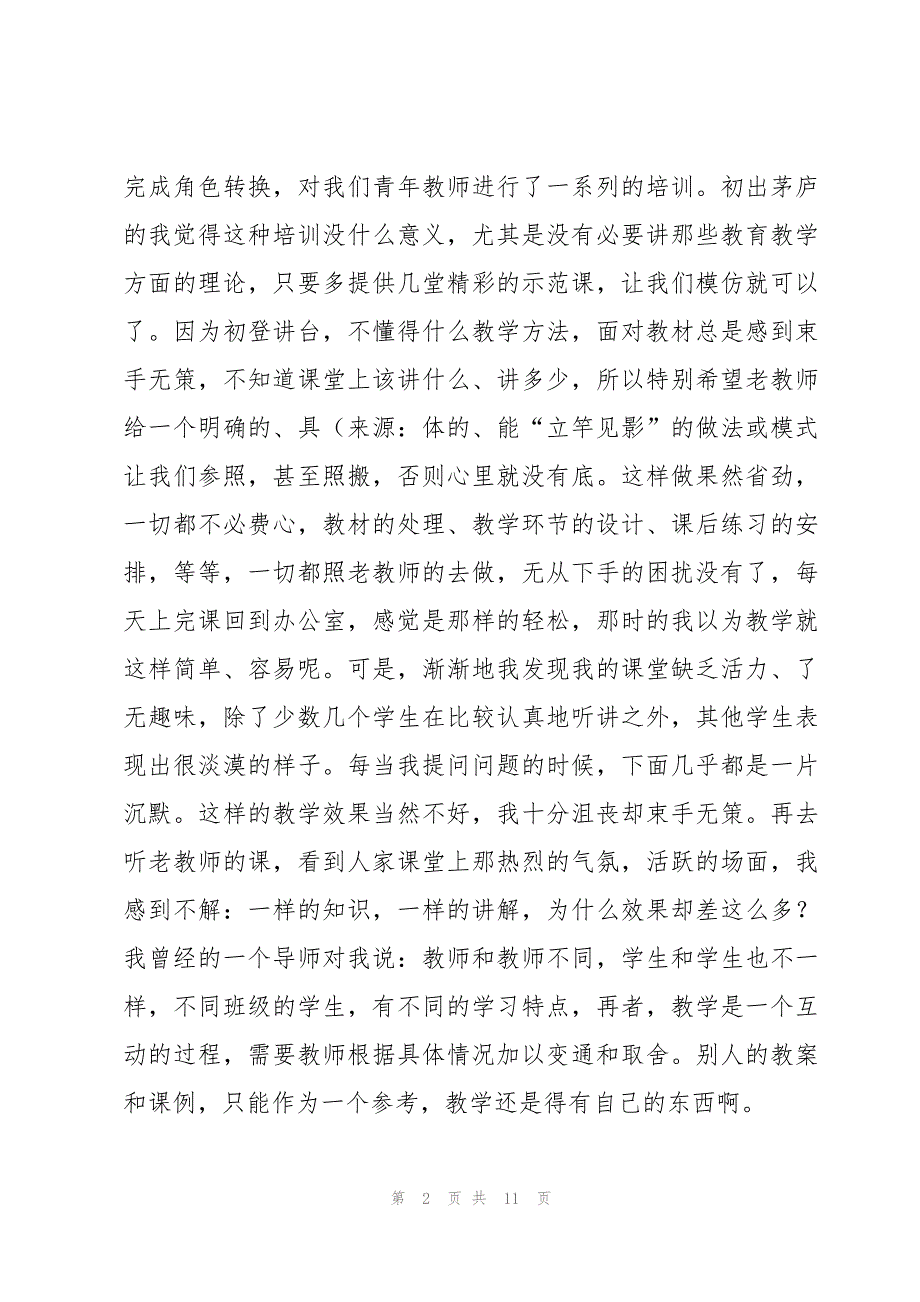 完成角色转换，对我们青年教师进行了一系列的培训。初出茅庐
的我觉得这种培训没什么意义，尤其是没有必要讲那些教育教学
方面的理论，只要多提供几堂精彩的示范课，让我们模仿就可以
了。因为初登讲台，不懂得什么教学方法，面对教材总是感到束
手无策，不知道课堂上该讲什么、讲多少，所以特别希望老教师
给一个明确的、具（来源：体的、能“立竿见影”的做法或模式
让我们参照，甚至照搬，否则心里就没有底。这样做果然省劲，
一切都不必费心，教材的处理、教学环节的设计、课后练习的安
排，等等，一切都照老教师的去做，无从下手的困扰没有了，每
天上完课回到办公室，感觉是那样的轻松，那时的我以为教学就
这样简单、容易呢。可是，渐渐地我发现我的课堂缺乏活力、了
无趣味，除了少数几个学生在比较认真地听讲之外，其他学生表
现出很淡漠的样子。每当我提问问题的时候，下面几乎都是一片
沉默。这样的教学效果当然不好，我十分沮丧却束手无策。再去
听老教师的课，看到人家课堂上那热烈的气氛，活跃的场面，我
感到不解：一样的知识，一样的讲解，为什么效果却差这么多？
我曾经的一个导师对我说：教师和教师不同，学生和学生也不一
样，不同班级的学生，有不同的学习特点，再者，教学是一个互
动的过程，需要教师根据具体情况加以变通和取舍。别人的教案
和课例，只能作为一个参考，教学还是得有自己的东西啊。
第 2 页 共 11 页